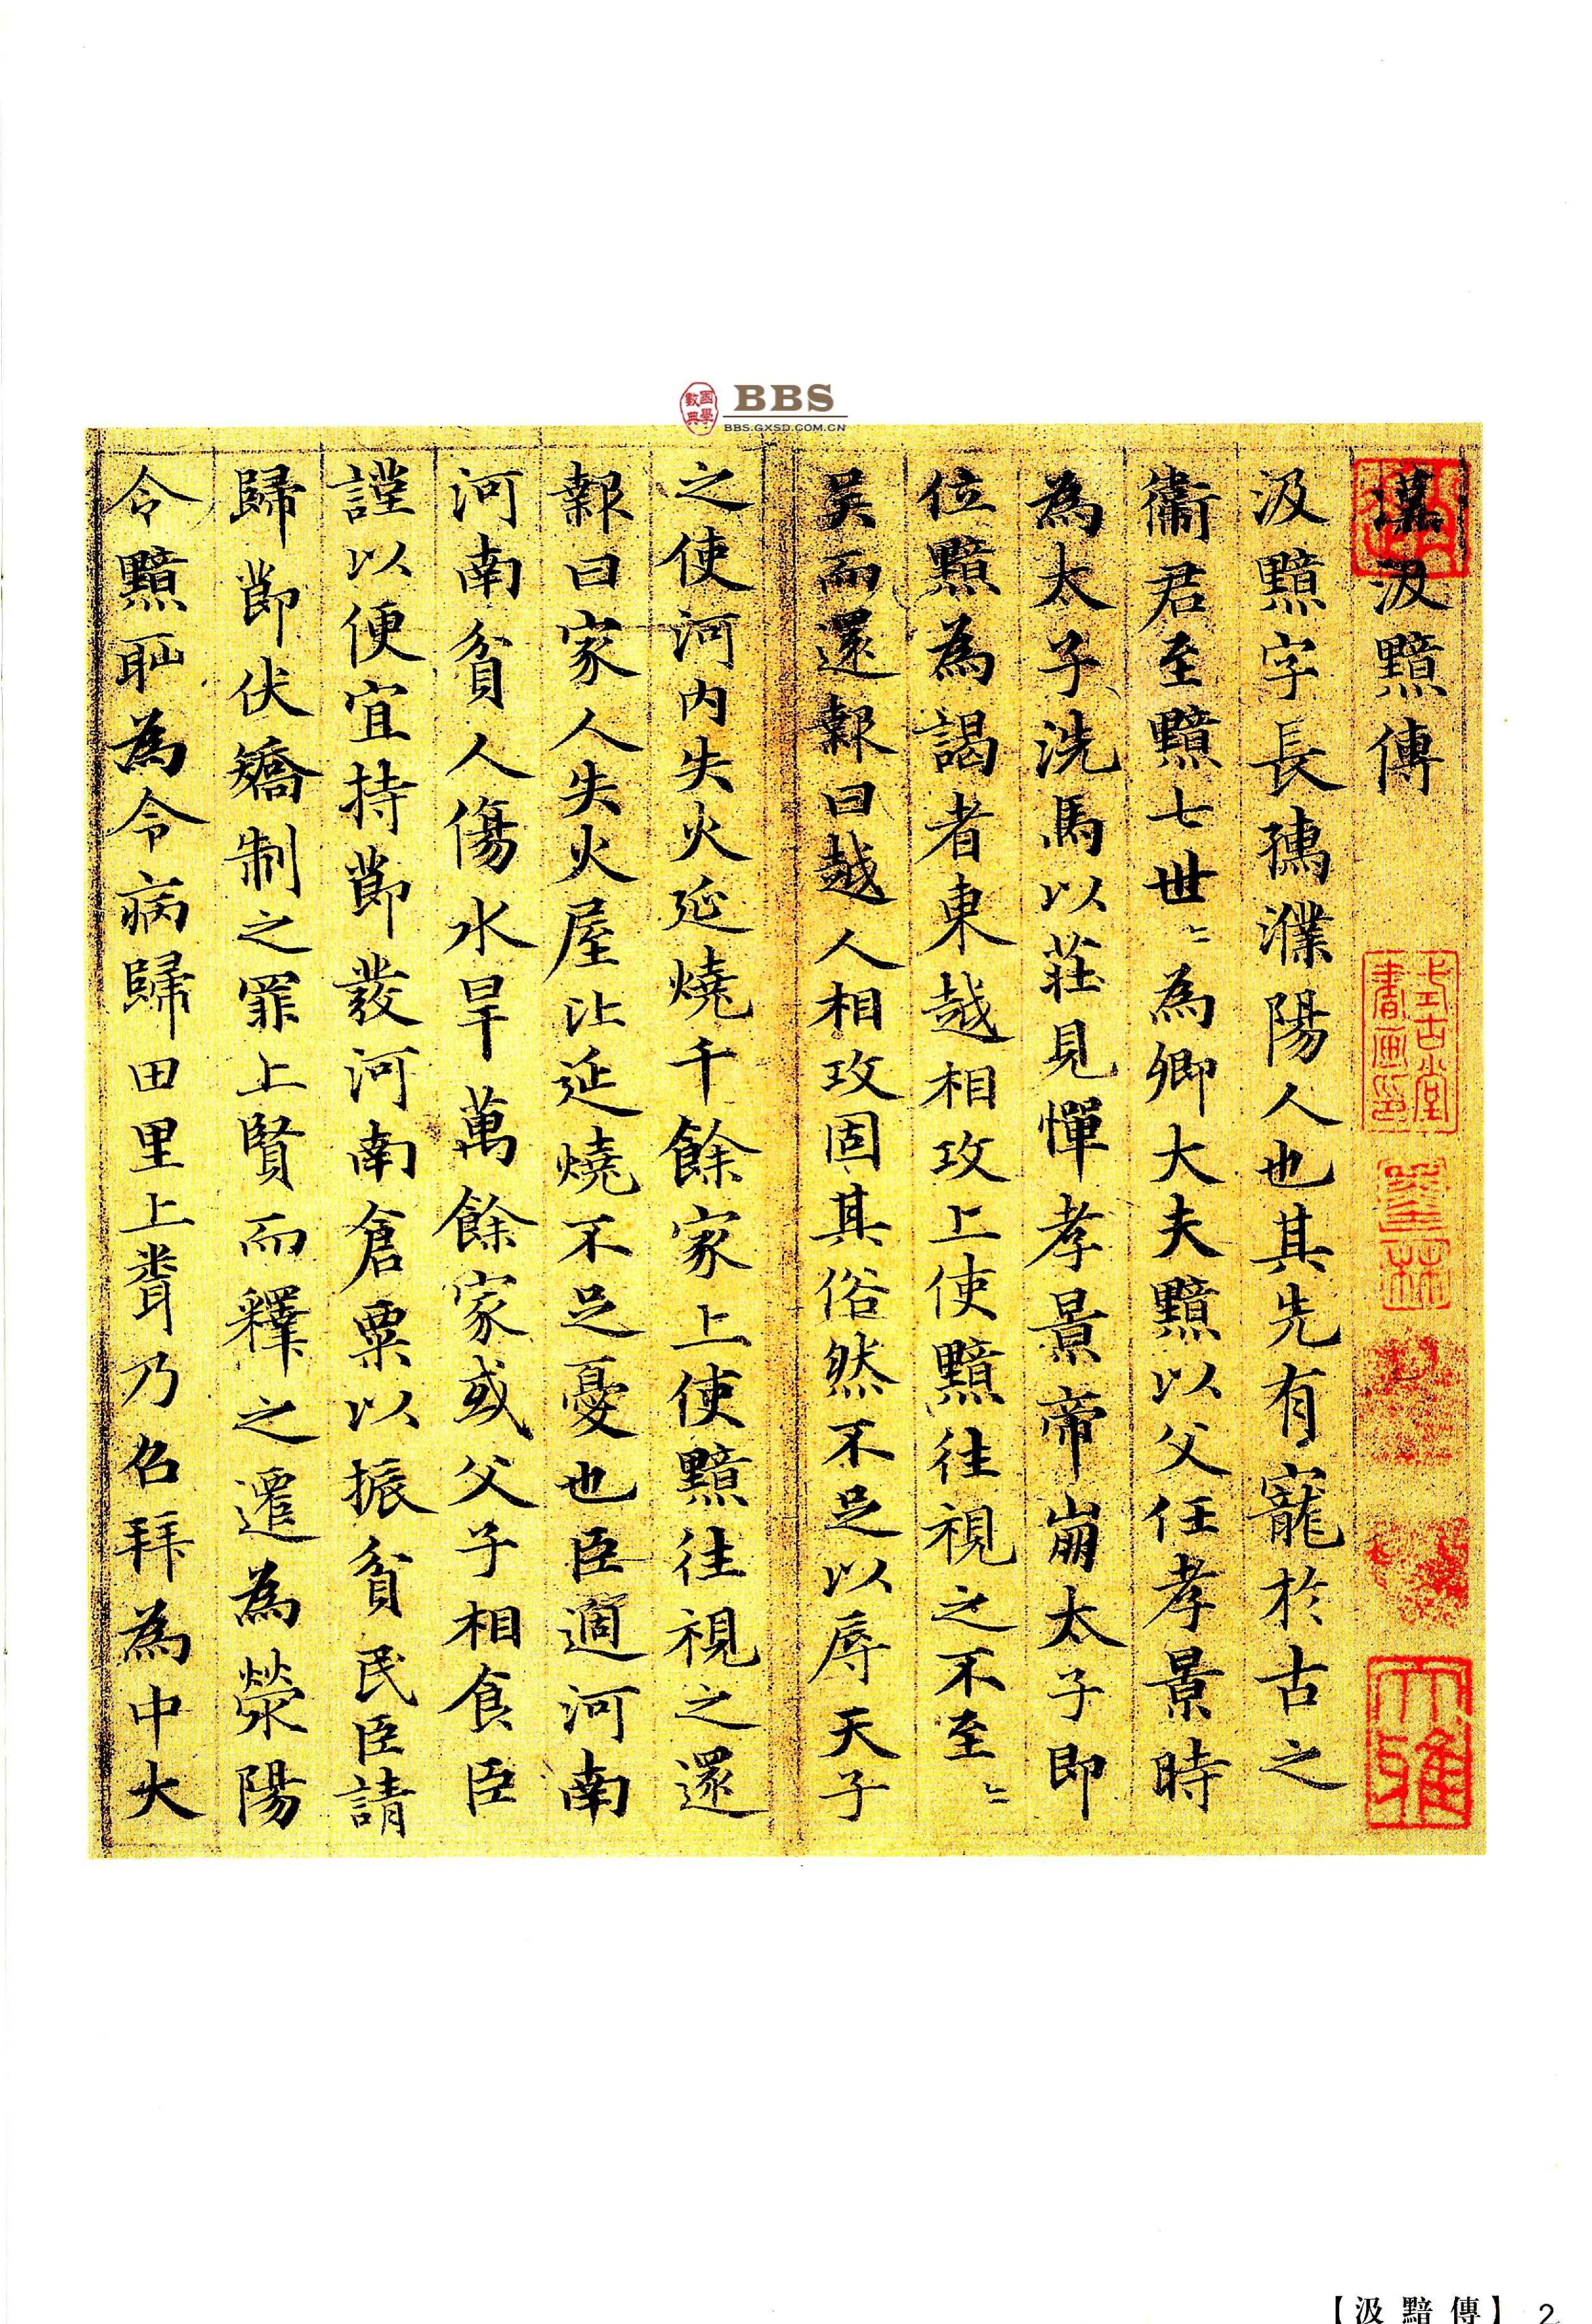 國學數典
BBS
BBS.GXSD.COM.CN
漢汲黯傳
汲黯字長孺濮陽人也其先有寵於古之
衛君至黯七世〻為卿大夫黯以父任孝景時
為太子洗馬以莊見憚孝景帝崩太子即
位黯為謁者東越相攻上使黯往視之不至〻
吴而還報曰越人相攻固其俗然不足以辱天子
之使河内失火延燒千餘家上使黯往視之還
報曰家人失火屋比延燒不足憂也臣適河南
河南貧人傷水旱萬餘家或父子相食臣
謹以便宜持節發河南倉粟以振貧民臣請
歸節伏矯制之罪上賢而釋之遷為滎陽
令黯恥為令病歸田里上聞乃召拜為中大
式古堂書画印
大雅
【汲黯傳】 2